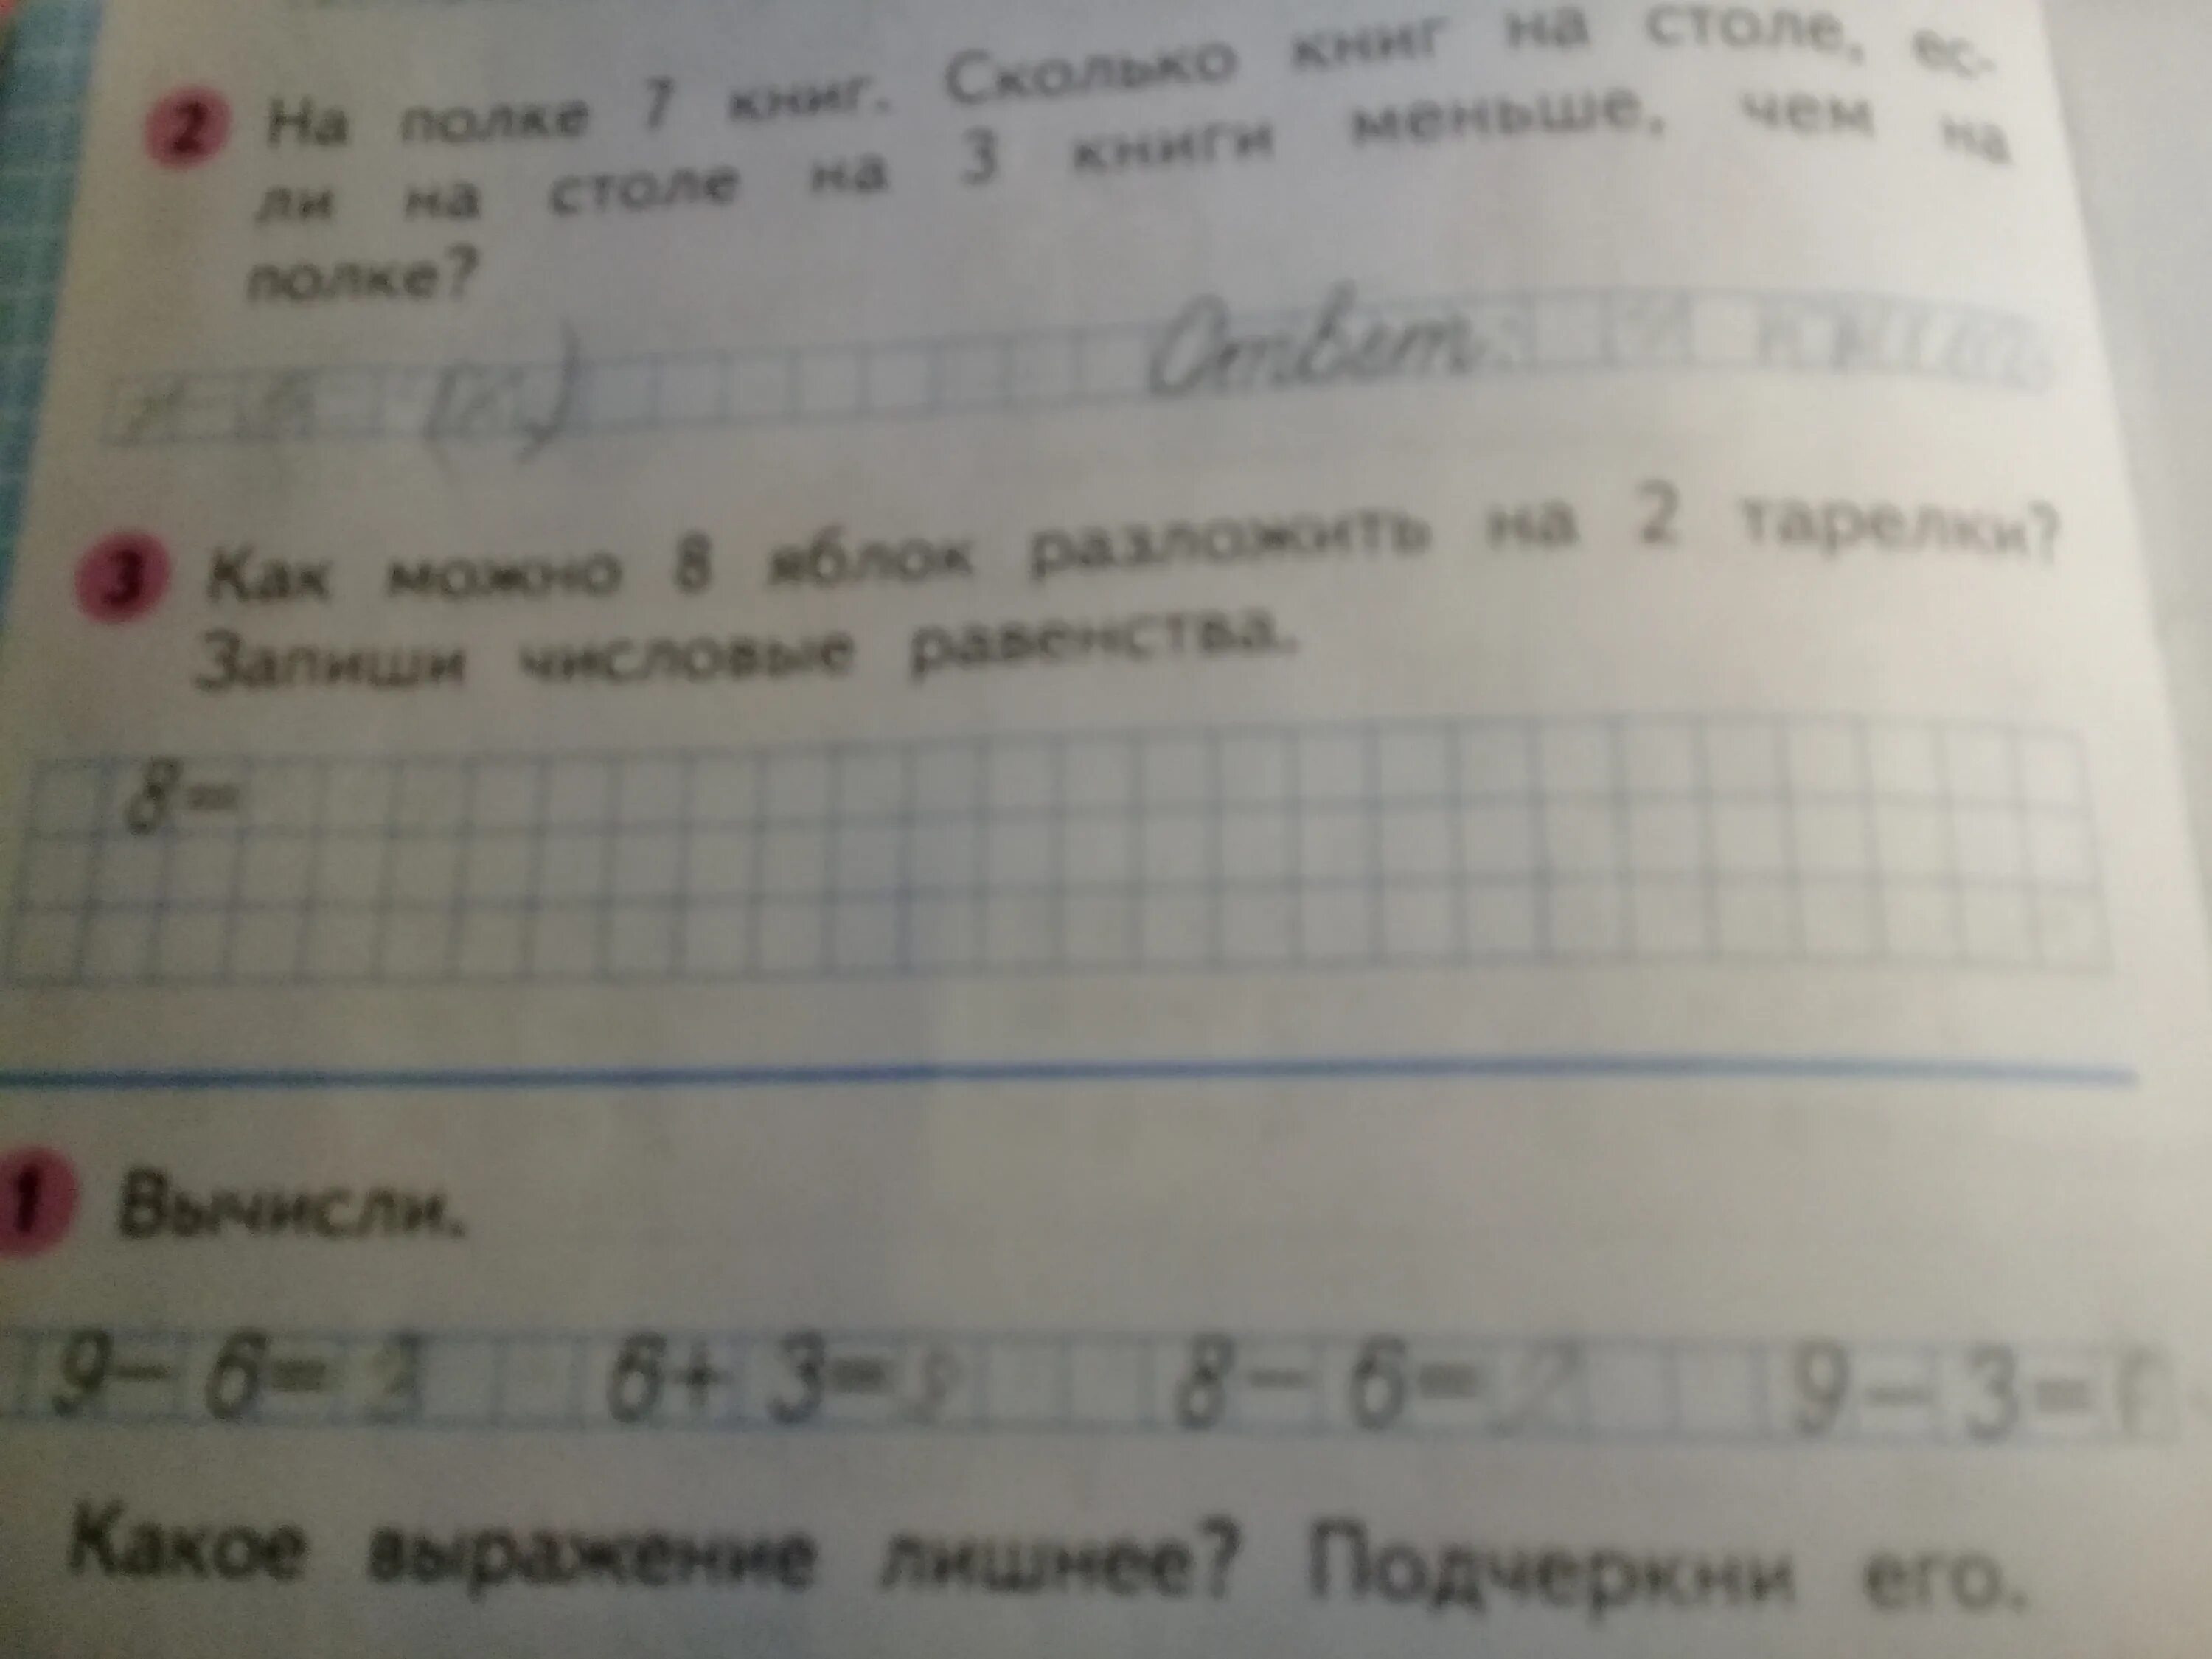 2 На полке 7 книг. Сколько книг на столе, ес-
ли на столе на 3 книги меньше, чем на
полке?
Ответ
3 Как можно 8 яблок разложить на 2 тарелки?
Запиши числовые равенства.
8=
1 Вычисли.
9-6=3 6+3=9 8-6=2 9-3=
Какое выражение лишнее? Подчеркни его.